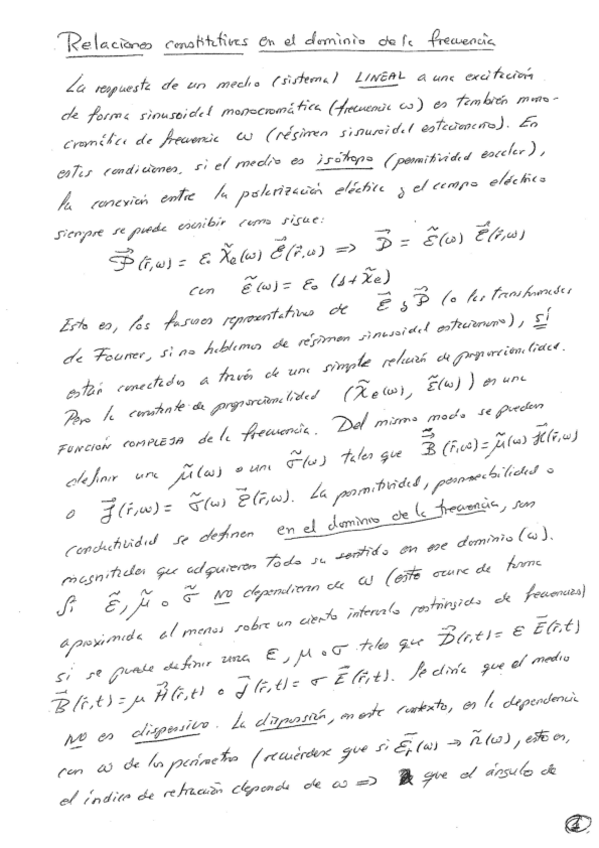 Relaciones constitutivas en el dominio de la frecuencia
La respuesta de un medio (sistema) LINEAL a una excitación
de forma sinusoidal monocromática (frecuencia ω) es también mono-
cromática de frecuencia ω (régimen sinusoidal estacionario). En
estas condiciones, si el medio es isótropo (permitividad escalar),
la conexión entre la polarización eléctrica y el campo eléctrico
siempre se puede escribir como sigue:
P⃗(r̄,ω) = ε₀ χ̃e(ω) E⃗(r̄,ω) => D⃗ = ε̃(ω) E⃗(r̄,ω)
con ε̃(ω) = ε₀ (1+χ̃e)
Esto es, los fasores representativos de E⃗ y D⃗ (o las transformadas
de Fourier, si no hablamos de régimen sinusoidal estacionario), sí
están conectados a través de una simple relación de proporcionalidad.
Pero la constante de proporcionalidad (χ̃e(ω), ε̃(ω)) es una
FUNCIÓN COMPLEJA de la frecuencia. Del mismo modo se pueden
definir una μ̃(ω) o una σ̃(ω) tales que B⃗(r̄,ω) = μ̃(ω) H⃗(r̄,ω)
o J⃗(r̄,ω) = σ̃(ω) E⃗(r̄,ω). La permitividad, permeabilidad o
conductividad se definen en el dominio de la frecuencia, son
magnitudes que adquieren todo su sentido en ese dominio (ω).
Si ε̃, μ̃ o σ̃ NO dependieran de ω (esto ocurre de forma
aproximada al menos sobre un cierto intervalo restringido de frecuencias)
sí se puede definir una ε, μ o σ tales que D⃗(r̄,t) = ε E⃗(r̄,t)
B⃗(r̄,t) = μ H⃗(r̄,t) o J⃗(r̄,t) = σ E⃗(r̄,t). Se diría que el medio
NO es dispersivo. La dispersión, en este contexto, es la dependencia
con ω de los parámetros (recuérdese que si ε̃r(ω) → ñ(ω), esto es,
el índice de refracción depende de ω => que el ángulo de
1